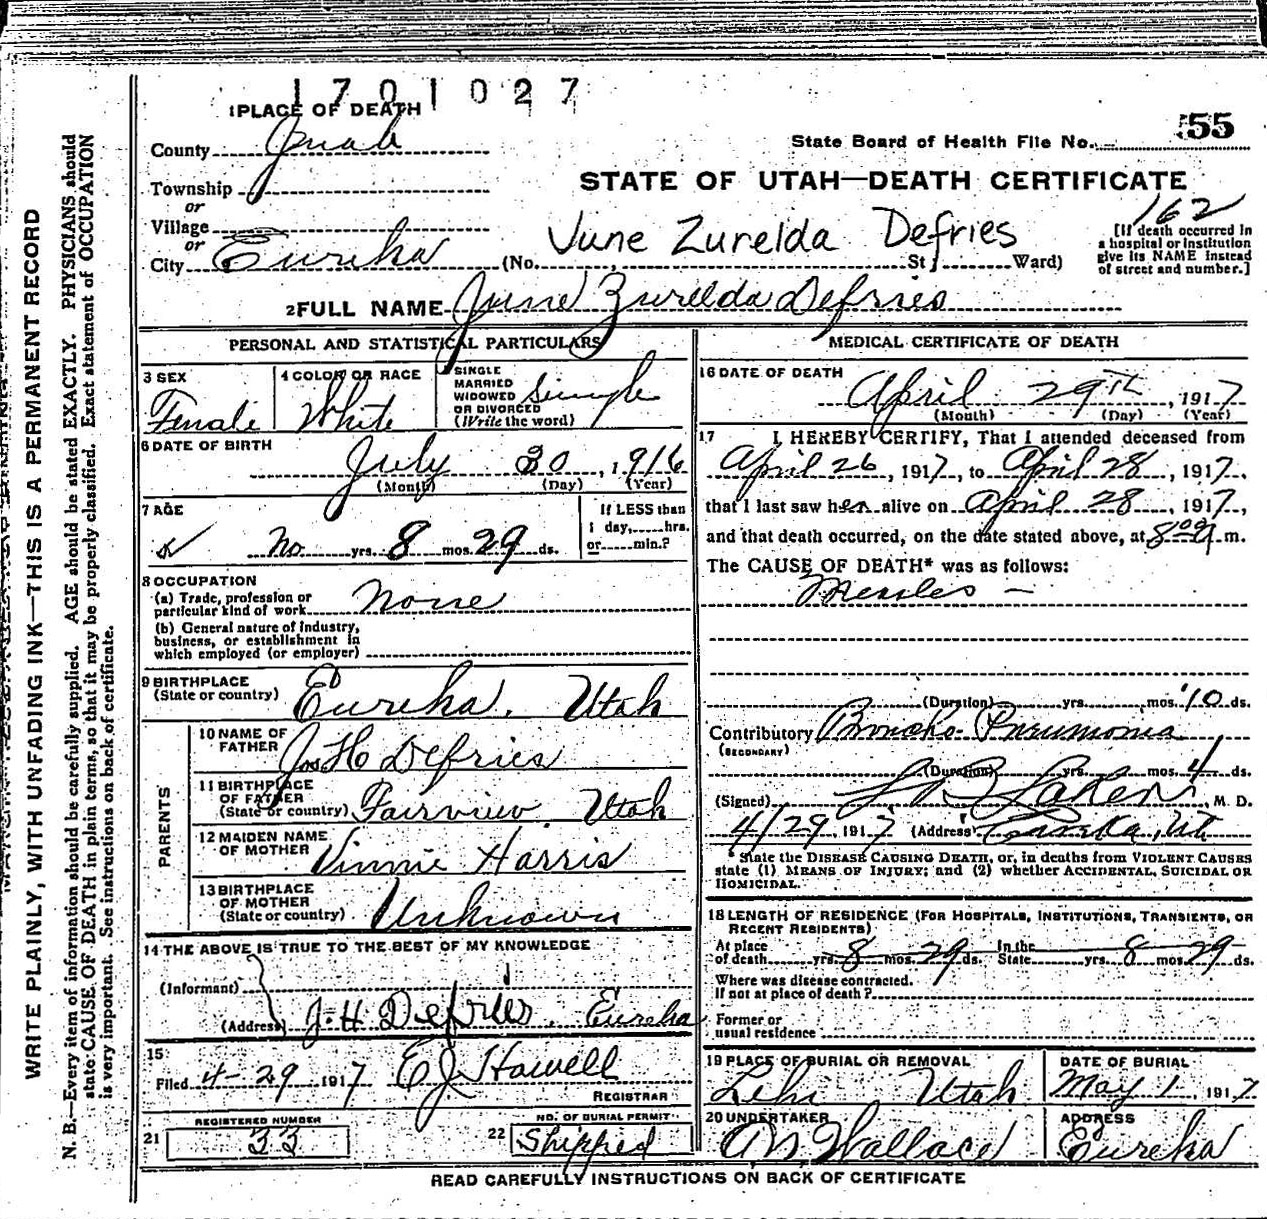 1701027
1 PLACE OF DEATH
555
County Juab
State Board of Health File No.
Township
STATE OF UTAH—DEATH CERTIFICATE
or
162
Village
or
City Eureka (No. St; Ward)
June Zurelda Defries
[If death occurred in
a hospital or institution
give its NAME instead
of street and number.]
2 FULL NAME June Zurelda Defries
PERSONAL AND STATISTICAL PARTICULARS
3 SEX
Female
4 COLOR OR RACE
White
SINGLE
MARRIED
WIDOWED
OR DIVORCED
(Write the word)
Single
6 DATE OF BIRTH
July 30, 1916
(Month) (Day) (Year)
7 AGE
No yrs. 8 mos. 29 ds.
If LESS than
1 day, hrs.
or min.?
8 OCCUPATION
(a) Trade, profession or
particular kind of work None
(b) General nature of industry,
business, or establishment in
which employed (or employer)
9 BIRTHPLACE
(State or country) Eureka, Utah
PARENTS
10 NAME OF
FATHER Jos H Defries
11 BIRTHPLACE
OF FATHER
(State or country) Fairview, Utah
12 MAIDEN NAME
OF MOTHER Vinnie Harris
13 BIRTHPLACE
OF MOTHER
(State or country) Unknown
14 THE ABOVE IS TRUE TO THE BEST OF MY KNOWLEDGE
(Informant)
(Address) J. H Defries, Eureka
15
Filed 4-29 1917 E J Howell
REGISTRAR
REGISTERED NUMBER
21 33
NO. OF BURIAL PERMIT
22 Shipped
MEDICAL CERTIFICATE OF DEATH
16 DATE OF DEATH
April 29th, 1917
(Month) (Day) (Year)
17 I HEREBY CERTIFY, That I attended deceased from
April 26, 1917, to April 28, 1917,
that I last saw her alive on April 28, 1917,
and that death occurred, on the date stated above, at 8:00 A m.
The CAUSE OF DEATH* was as follows:
Measles —
(Duration) yrs. mos. 10 ds.
Contributory Broncho-Pneumonia
(SECONDARY)
(Duration) yrs. mos. 4 ds.
(Signed) M. D.
4/29, 1917 (Address) Eureka, Ut
* State the DISEASE CAUSING DEATH, or, in deaths from VIOLENT CAUSES
state (1) MEANS OF INJURY; and (2) whether ACCIDENTAL, SUICIDAL OR
HOMICIDAL.
18 LENGTH OF RESIDENCE (FOR HOSPITALS, INSTITUTIONS, TRANSIENTS, OR
RECENT RESIDENTS)
At place
of death yrs. 8 mos. 29 ds. In the
State yrs. 8 mos. 29 ds.
Where was disease contracted.
If not at place of death?
Former or
usual residence
19 PLACE OF BURIAL OR REMOVAL
Lehi Utah
DATE OF BURIAL
May 1, 1917
20 UNDERTAKER
A N Wallace
ADDRESS
Eureka
READ CAREFULLY INSTRUCTIONS ON BACK OF CERTIFICATE
WRITE PLAINLY, WITH UNFADING INK—THIS IS A PERMANENT RECORD
N. B.—Every item of information should be carefully supplied. AGE should be stated EXACTLY. PHYSICIANS should
state CAUSE OF DEATH in plain terms, so that it may be properly classified. Exact statement of OCCUPATION
is very important. See instructions on back of certificate.